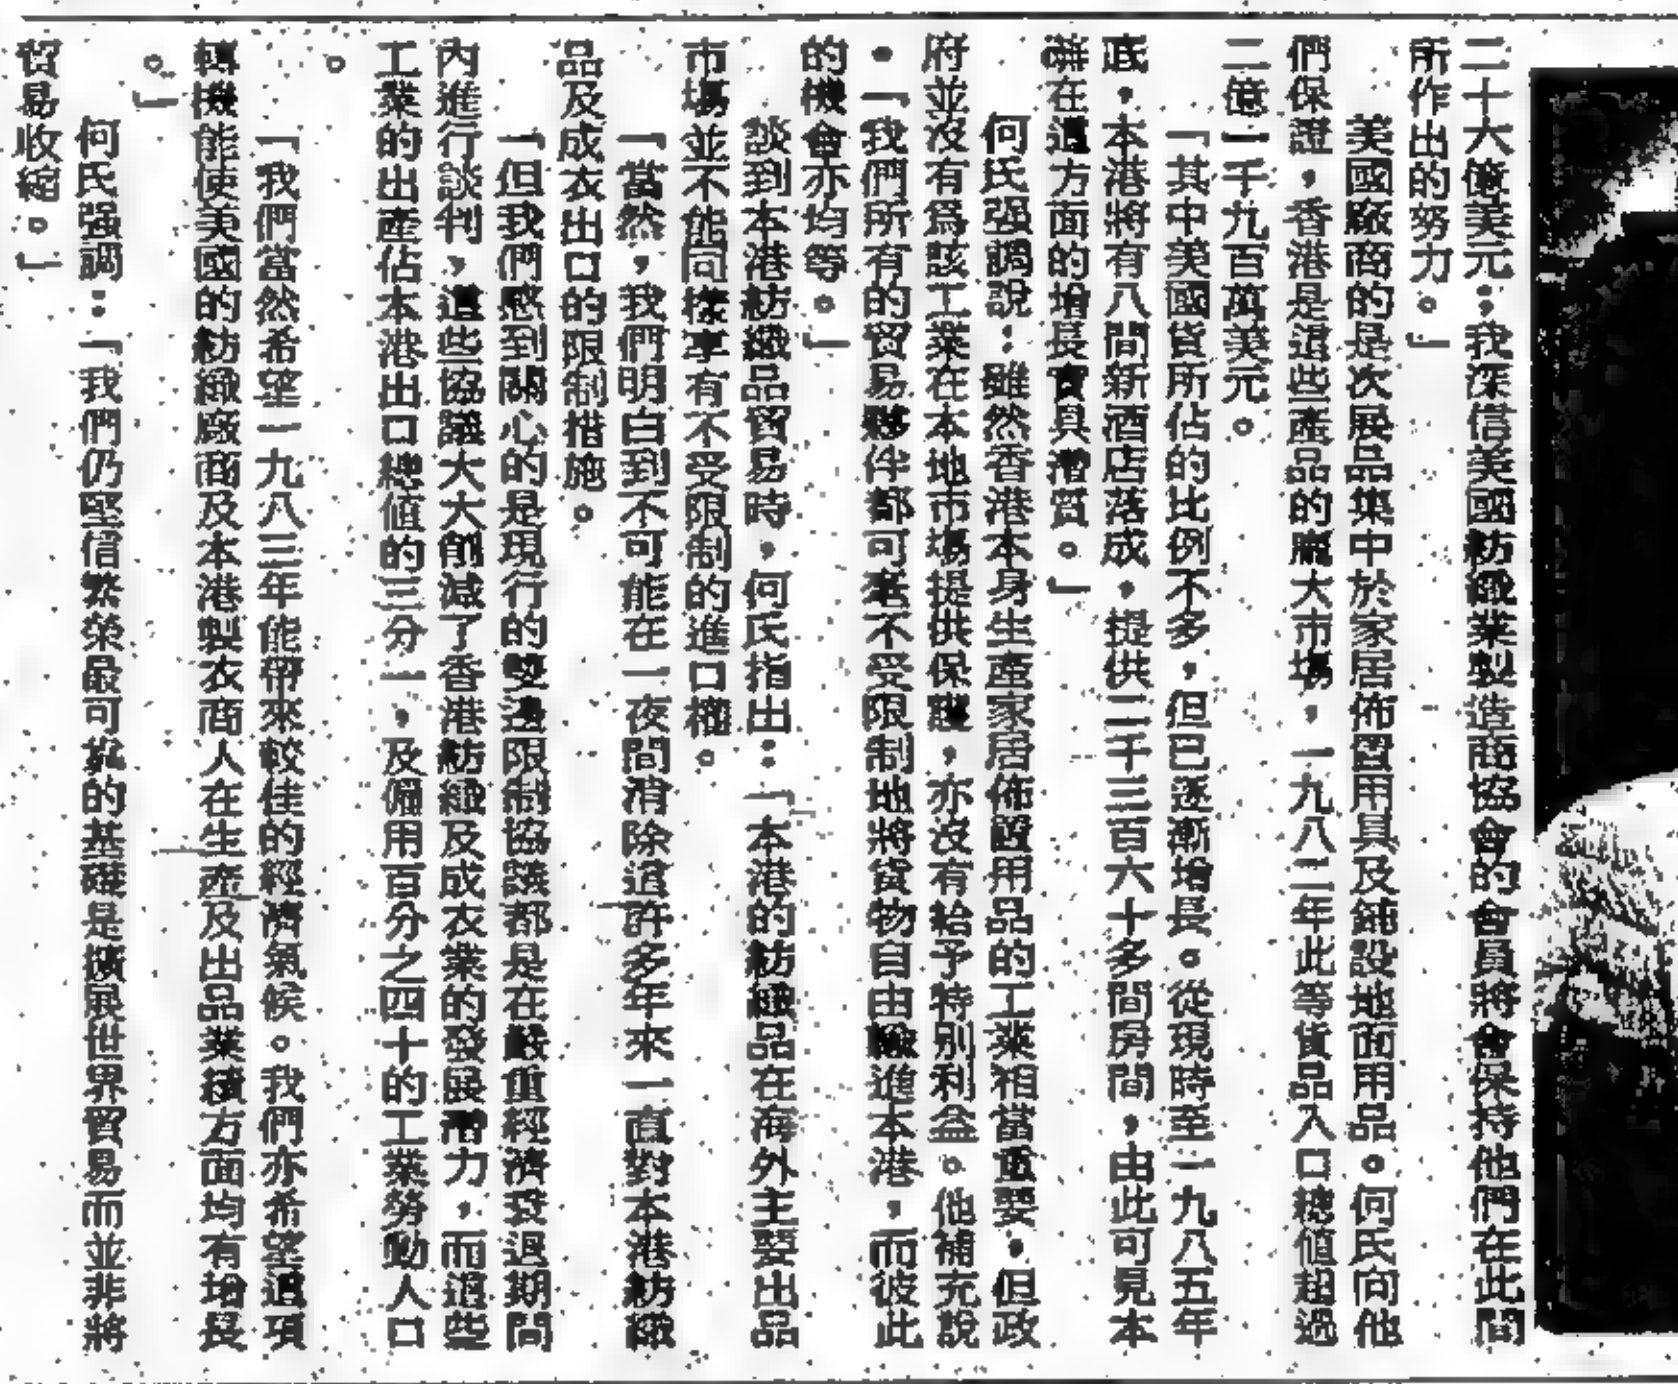 二十六億美元；我深信美國紡織業製造商協會的會員將會保持他們在此間
所作出的努力。」
美國廠商的是次展品集中於家居佈置用具及鋪設地面用品。何氏向他
們保證，香港是這些產品的龐大市場，一九八二年此等貨品入口總值超過
二億一千九百萬美元。
「其中美國貨所佔的比例不多，但已逐漸增長。從現時至一九八五年
底，本港將有八間新酒店落成，提供二千三百六十多間房間，由此可見本
港在這方面的增長實具潛質。」
何氏强調說：雖然香港本身生產家居佈置用品的工業相當重要，但政
府並沒有爲該工業在本地市場提供保護，亦沒有給予特別利益。他補充說
：「我們所有的貿易夥伴都可毫不受限制地將貨物自由輸進本港，而彼此
的機會亦均等。」
談到本港紡織品貿易時，何氏指出：「本港的紡織品在海外主要出品
市場並不能同樣享有不受限制的進口權。
「當然，我們明白到不可能在一夜間消除這許多年來一直對本港紡織
品及成衣出口的限制措施。
「但我們感到關心的是現行的雙邊限制協議都是在嚴重經濟衰退期間
內進行談判，這些協議大大削減了香港紡織及成衣業的發展潛力，而這些
工業的出產佔本港出口總值的三分一，及僱用百分之四十的工業勞動人口
。
「我們當然希望一九八三年能帶來較佳的經濟氣候。我們亦希望這項
轉機能使美國的紡織廠商及本港製衣商人在生產及出品業績方面均有增長
。」
何氏强調：「我們仍堅信繁榮最可靠的基礎是擴展世界貿易而並非將
貿易收縮。」